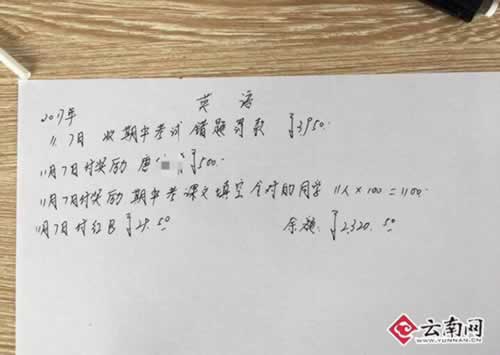 英语
2017年
11.7日 收期中考试错题罚款 ¥3950.
11月7日付奖励 唐 ¥500.
11月7日付奖励 期中考课文填空全对的同学 11人×100=1100.
11月7日付红B ¥29.50 余额:¥2320.50
云南网
WWW.YUNNAN.CN